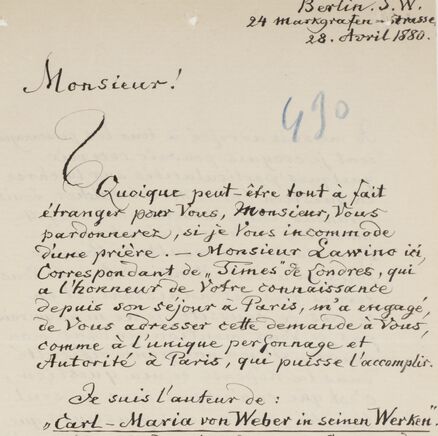 Berlin. S. W.
24 Markgrafen-Strasse
28. Avril 1880.
Monsieur!
490
Quoique peut-être tout à fait
étranger pour Vous, Monsieur, Vous
pardonnerez, si je Vous incommode
d'une prière. — Monsieur Lawino ici,
Correspondant de „Times" de Londres, qui
a l'honneur de Votre connaissance
depuis son séjour à Paris, m'a engagé,
de Vous adresser cette demande à Vous,
comme à l'unique personnage et
Autorité à Paris, qui puisse l'accomplir.
Je suis l'auteur de:
„Carl-Maria von Weber in seinen Werken".